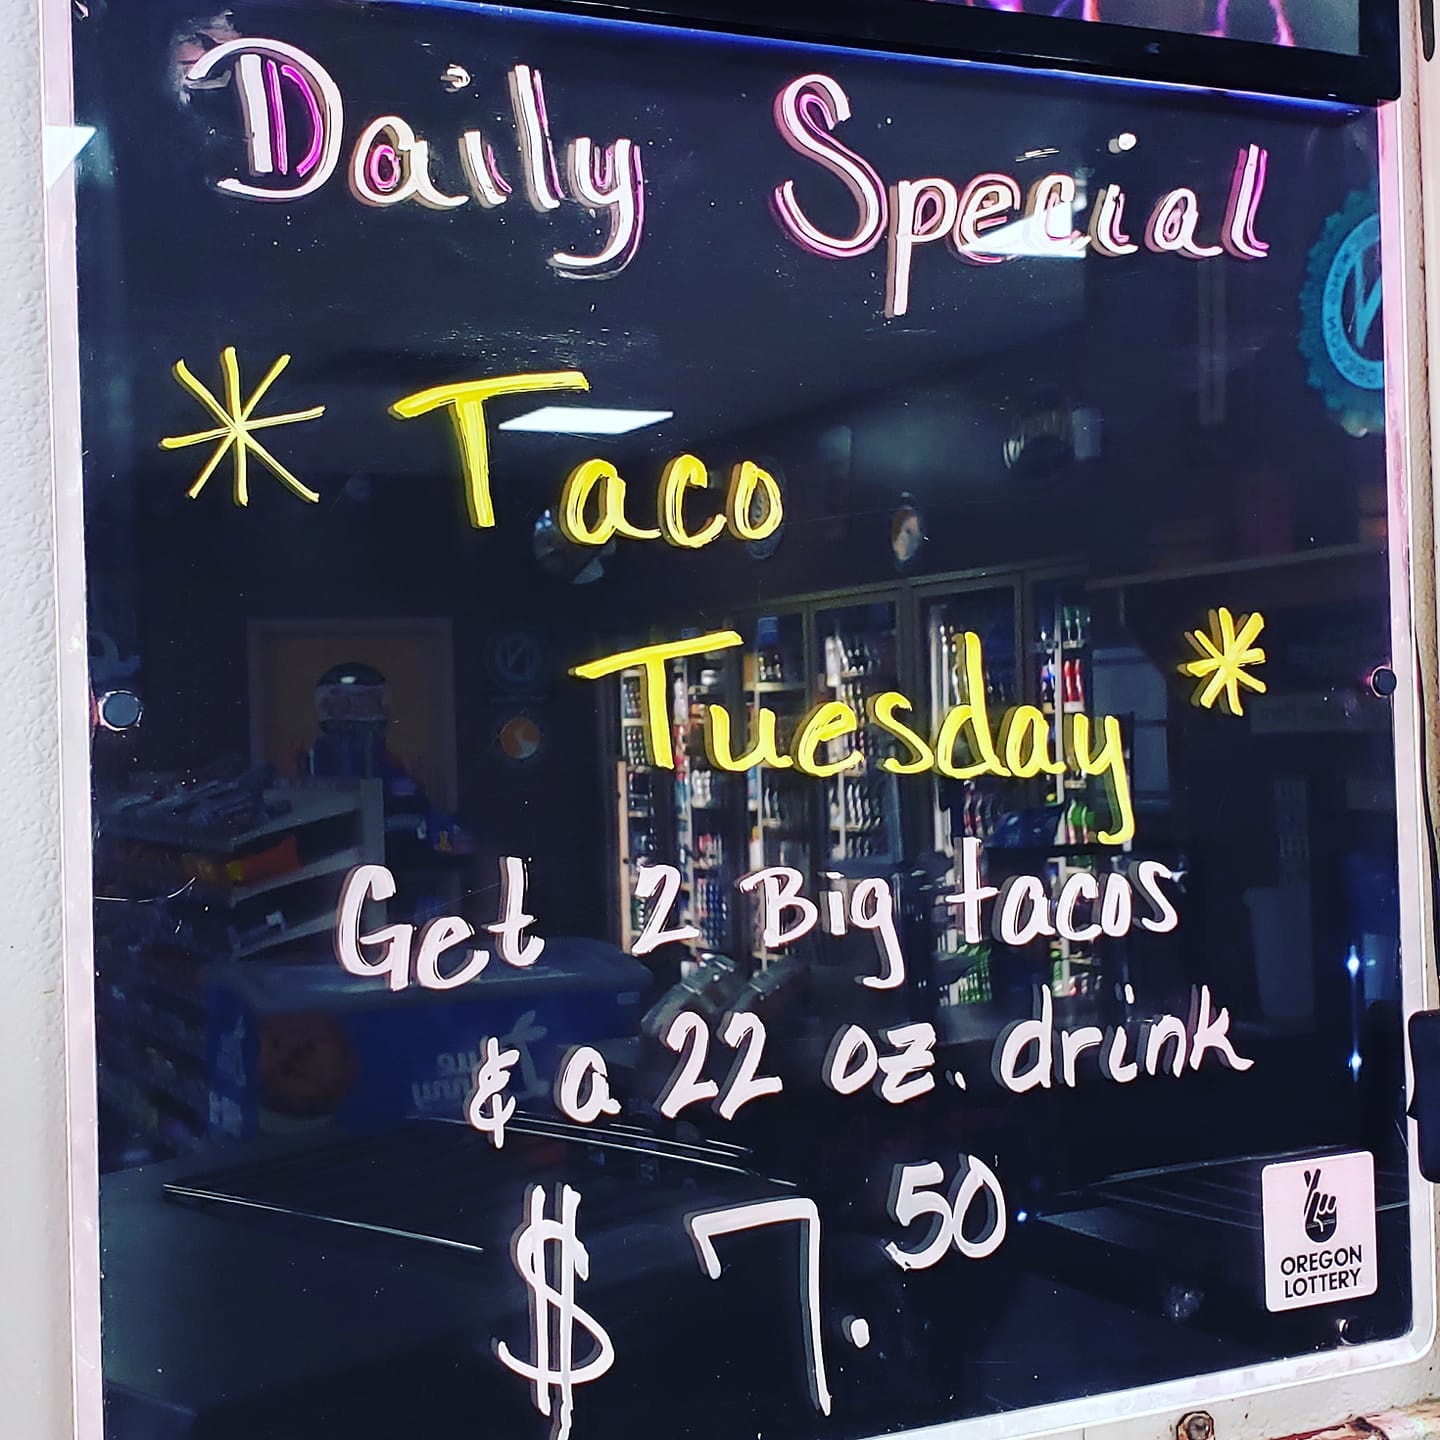 Daily Special
* Taco
Tuesday *
Get 2 Big tacos
& a 22 oz. drink
$7.50
OREGON
LOTTERY